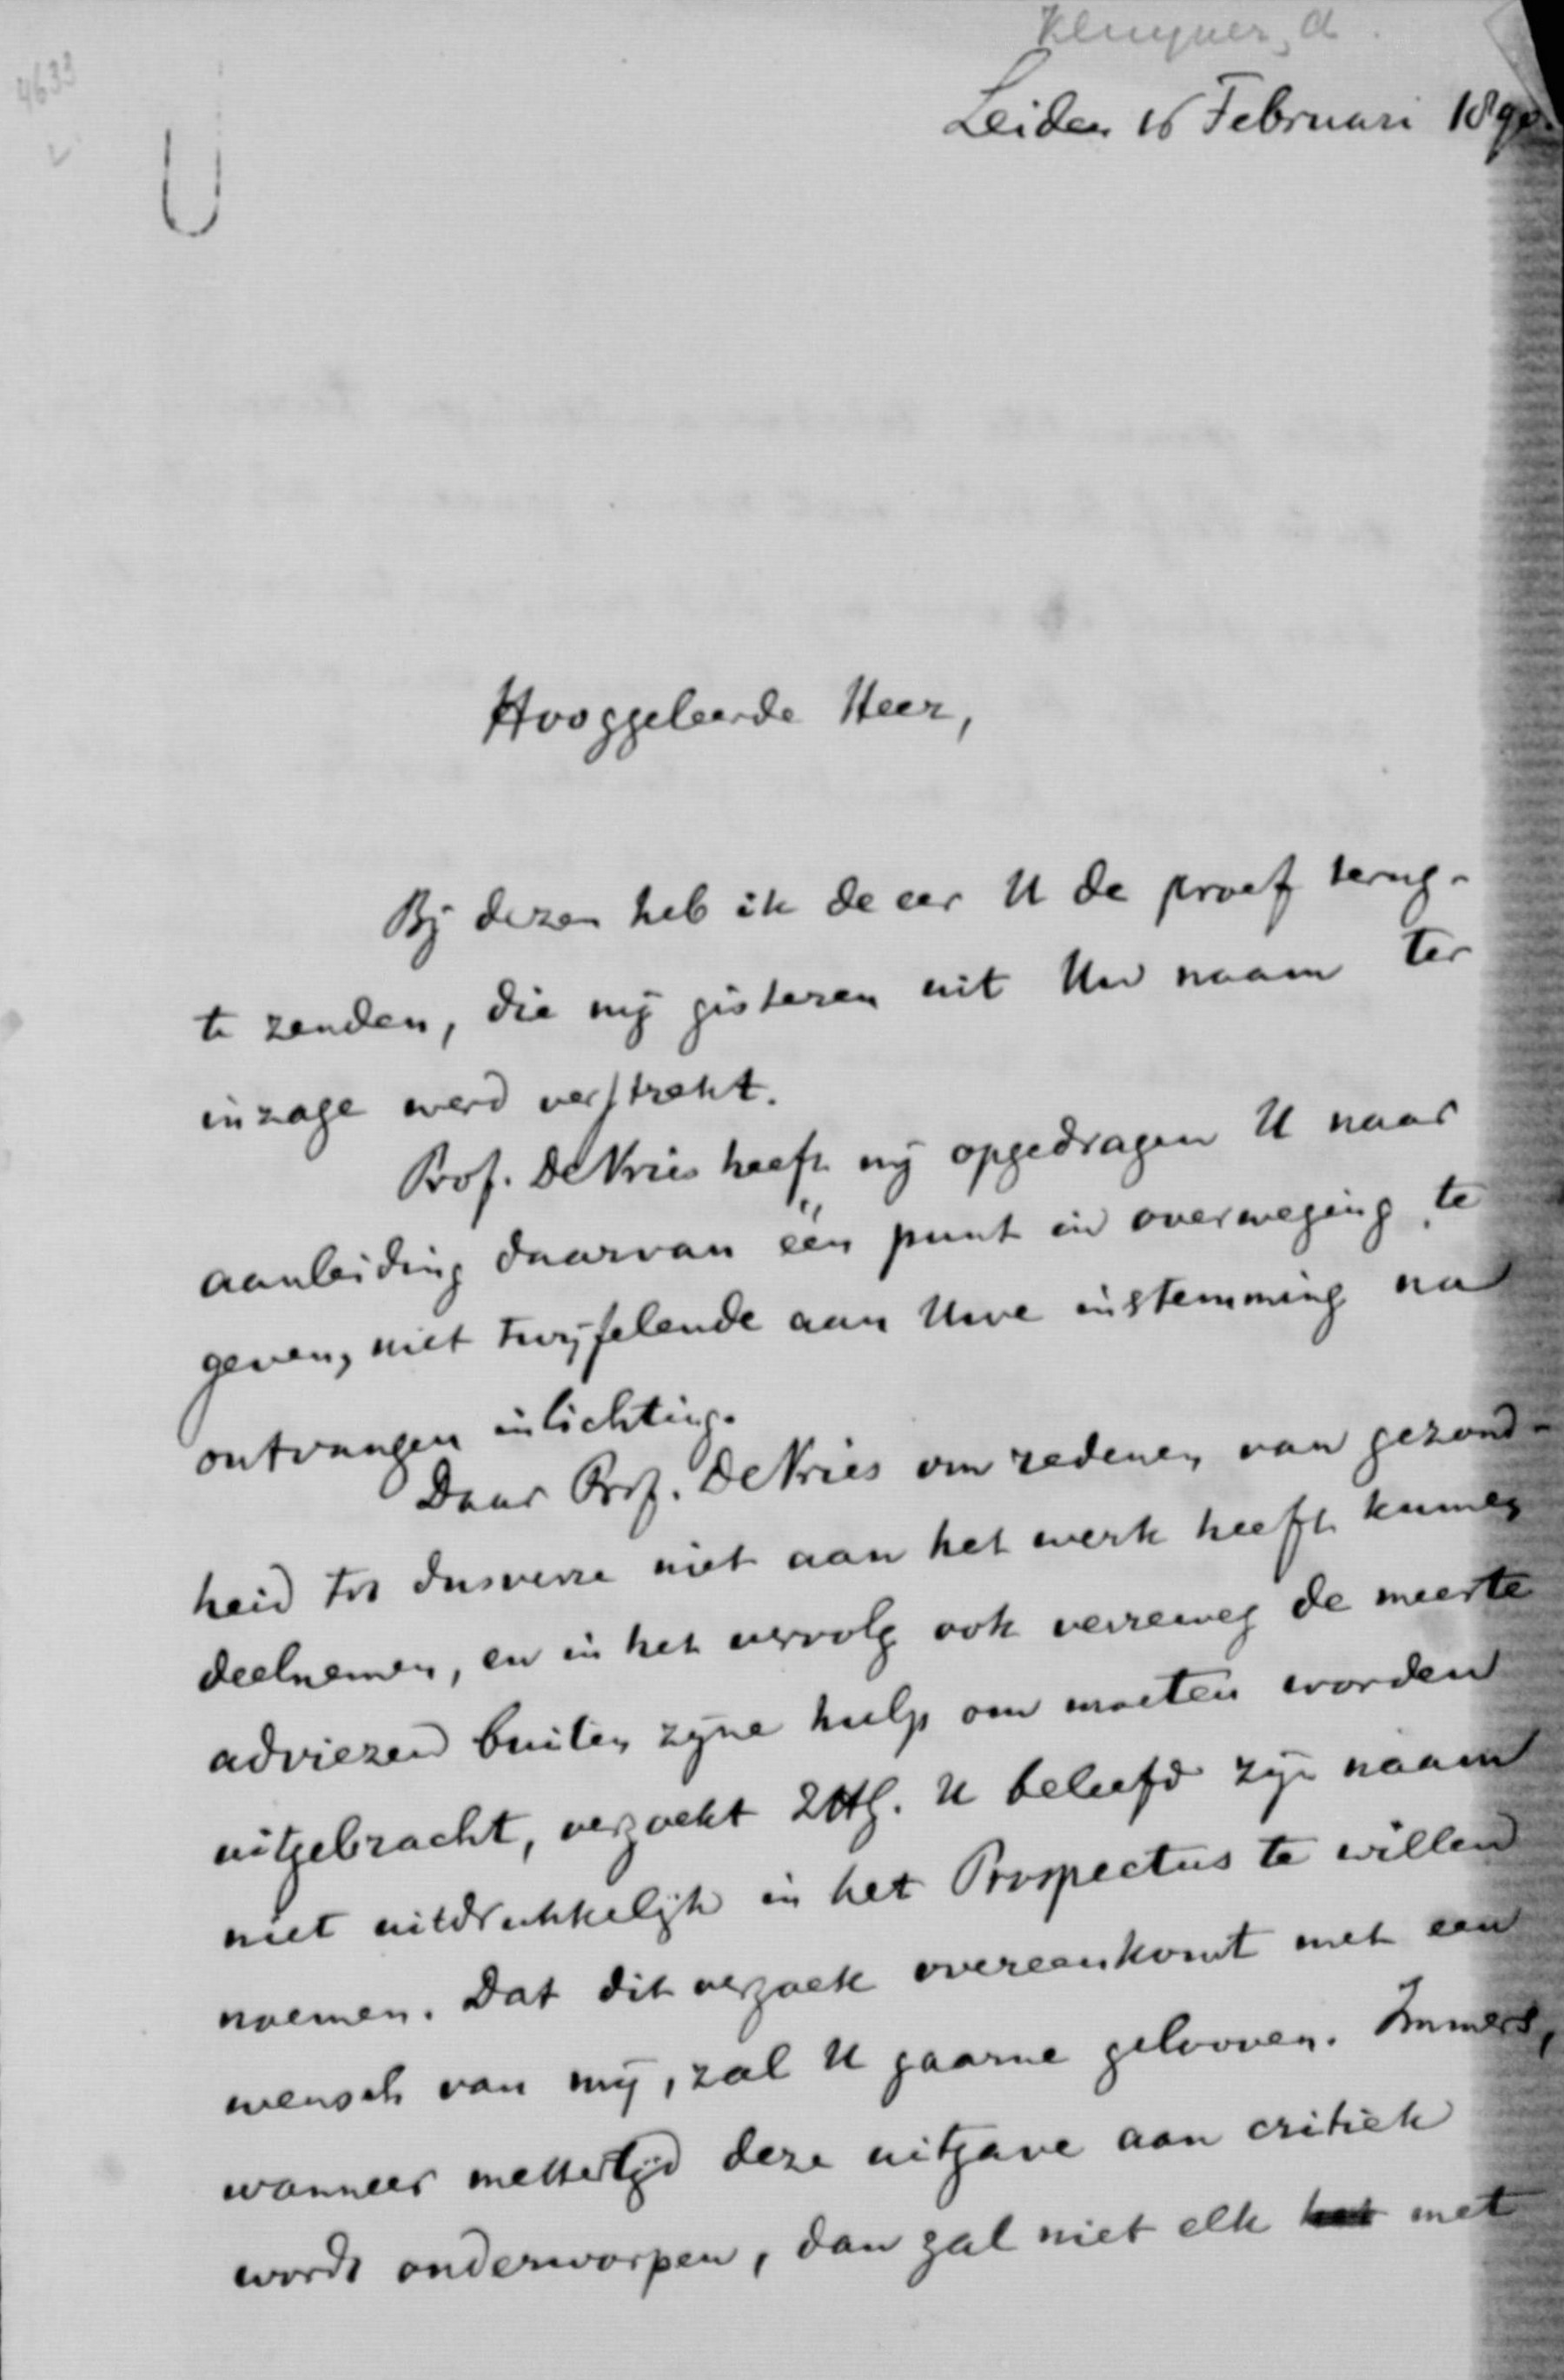 Kluyver, A.
4633
Leiden 16 Februari 1890.
Hooggeleerde Heer,
Bij dezen heb ik de eer U de proef terug-
te zenden, die mij gisteren uit Uw naam ter
inzage werd verstrekt.
Prof. De Vries heeft mij opgedragen U naar
aanleiding daarvan één punt in overweging te
geven, niet twijfelende aan Uwe instemming na
ontvangen inlichting.
Daar Prof. De Vries om redenen van gezond-
heid tot dusverre niet aan het werk heeft kunnen
deelnemen, en in het vervolg ook verreweg de meeste
adviezen buiten zijne hulp om moeten worden
uitgebracht, verzoekt ZHG. U beleefd zijn naam
niet uitdrukkelijk in het Prospectus te willen
noemen. Dat dit verzoek overeenkomt met een
wensch van mij, zal U gaarne gelooven. Immers,
wanneer mettertijd deze uitgave aan critiek
wordt onderworpen, dan zal niet elk met